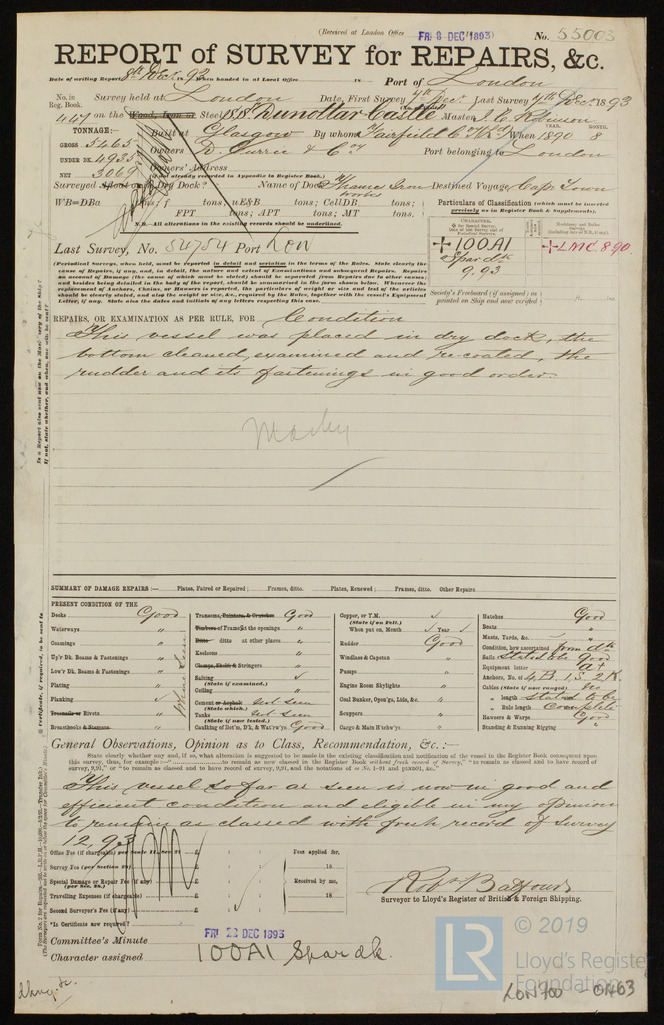 (Received at London Office FRI 8 DEC 1893)
No. 55003
REPORT of SURVEY for REPAIRS, &c.
Date of writing Report 8th Dec. 1893 When handed in at Local Office 18 Port of London
No. in Reg. Book. Survey held at London Date, First Survey 4th Dec. Last Survey 7th Dec. 1893
447 on the Wood, Iron or Steel S.S. "Dunottar Castle" Master J. C. Robinson
TONNAGE:— Built at Glasgow By whom Fairfield Co. When 1890 YEAR. MONTH. 8
GROSS 5465
UNDER DK. 4935
NET 3069
Owners D. Currie & Co. Port belonging to London
Owners' Address
(If not already recorded in Appendix to Register Book.)
Surveyed Afloat or in Dry Dock? Name of Dock Thames Iron Works Destined Voyage Cape Town
WB=DBa tons; f tons, uE&B tons; CellDB tons;
FPT tons; APT tons; MT tons.
N.B.—All alterations in the existing records should be underlined.
Particulars of Classification (which must be inserted precisely as in Register Book & Supplements).
CHARACTER.
+100A1
Spar dk
9,93
+LMC 8.90
Last Survey, No. 54754 Port Lon
Society's Freeboard (if assigned) as printed on Ship and now verified
(Periodical Surveys, when held, must be reported in detail and seriatim in the terms of the Rules. State clearly the cause of Repairs, if any, and, in detail, the nature and extent of Examinations and subsequent Repairs. Repairs on account of Damage (the cause of which must be stated) should be separated from Repairs due to other causes; and besides being detailed in the body of the report, should be summarised in the form shown below. Whenever the replacement of Anchors, Chains, or Hawsers is reported, the particulars of weight or size and test of the articles should be clearly stated, and also the weight or size, &c., required by the Rules, together with the vessel's Equipment Letter, if any. State also the dates and initials of any letters respecting this case.
REPAIRS, OR EXAMINATION AS PER RULE, FOR Condition
This vessel was placed in dry dock, the
bottom cleaned, examined and re-coated, the
rudder and its fastenings in good order.
SUMMARY OF DAMAGE REPAIRS :— Plates, Faired or Repaired; Frames, ditto. Plates, Renewed; Frames, ditto. Other Repairs.
PRESENT CONDITION OF THE
Decks Good
Waterways "
Coamings "
Up'r Dk. Beams & Fastenings "
Low'r Dk. Beams & Fastenings "
Plating "
Planking
Treenails or Rivets "
Breasthooks & Stemson "
where seen
Transoms, Pointers, & Crutches Good
Timbers or Frames at the openings "
Ditto ditto at other places "
Keelsons "
Clamps, Shelfs & Stringers "
Salting
(State if examined.)
Ceiling "
Cement or Asphalt not seen
(State which.)
Tanks not seen
(State if now tested.)
Caulking of Bot'm, D'k, & Wat'rw'ys Good
Copper, or Y.M.
(State if on Felt.)
When put on, Month Year
Rudder Good
Windlass & Capstan "
Pumps "
Engine Room Skylights "
Coal Bunker, Open'gs, Lids, &c. "
Scuppers "
Cargo & Main H'tchw'ys "
Hatches Good
Boats "
Masts, Yards, &c. "
Condition, how ascertained from dk
Sails Stated to be good
Equipment letter a+
Anchors, No. of 4B. 1S. 2K.
Cables (State if now ranged) No
" length stated to be
" Rule length complete
Hawsers & Warps Good
Standing & Running Rigging "
General Observations, Opinion as to Class, Recommendation, &c. :—
State clearly whether any and, if so, what alteration is suggested to be made in the existing classification and notification of the vessel in the Register Book consequent upon
this survey, thus, for example:— "to remain as now classed in the Register Book without fresh record of Survey," "to remain as classed and to have record of
survey, 9,91," or "to remain as classed and to have record of survey, 9,91, and the notations of
This vessel so far as seen is now in good and
efficient condition and eligible in my opinion
to remain as classed with fresh record of survey
12,93
Office Fee (if chargeable) per Scale II., Sec. 27 £
Survey Fee (per Section 28) £
Special Damage or Repair Fee (if any) £
(per Sec. 28.)
Travelling Expenses (if chargeable) £
Second Surveyor's Fee (if any) £
Fees applied for, 18
Received by me, 18
*Is Certificate now required?
Robt. Balfour
Surveyor to Lloyd's Register of British & Foreign Shipping.
Committee's Minute FRI 22 DEC 1893
Character assigned 100A1 Spar dk.
LR
© 2019
Lloyd's Register
Foundation
LON700 - 0463